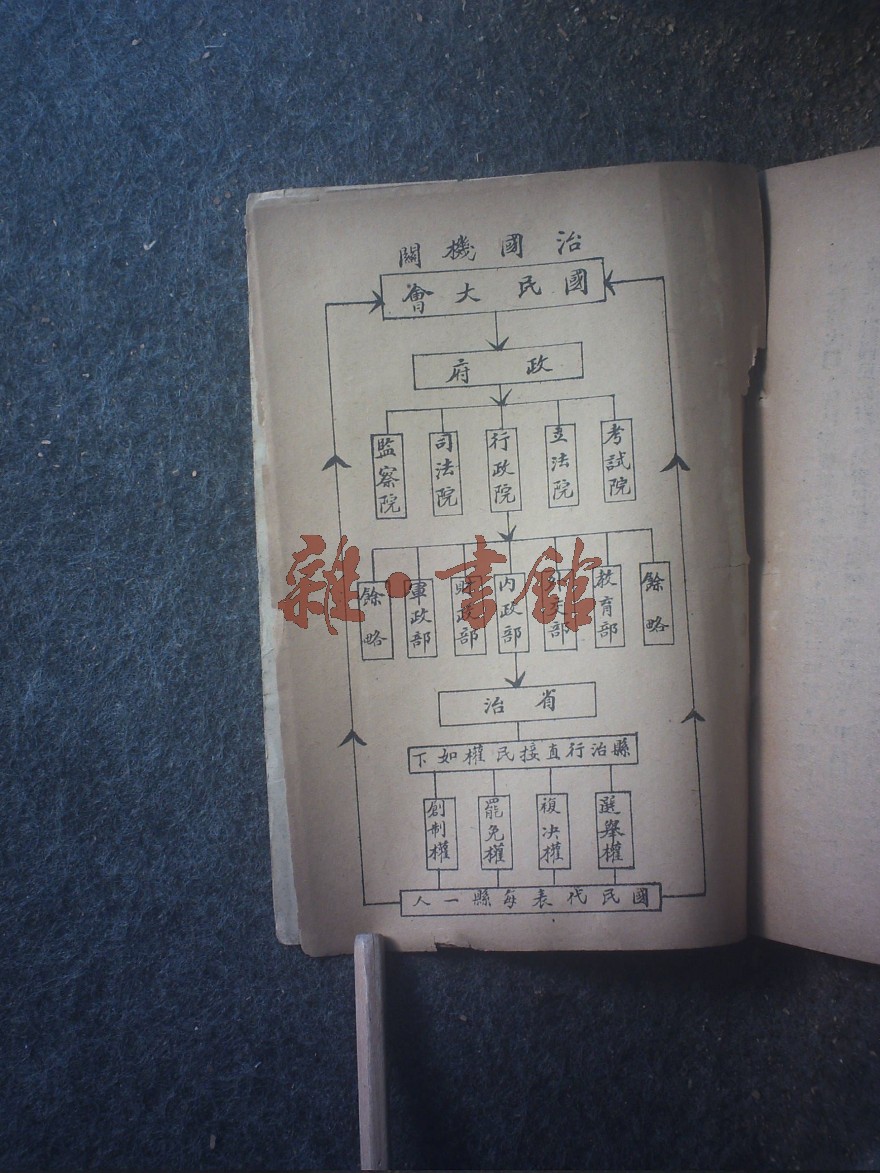 治國機關
國民大會
政府
考試院
立法院
行政院
司法院
監察院
餘略
教育部
外交部
内政部
財政部
軍政部
餘略
省治
縣治行直接民權如下
選舉權
複决權
罷免權
創制權
國民代表每縣一人
雜·書館